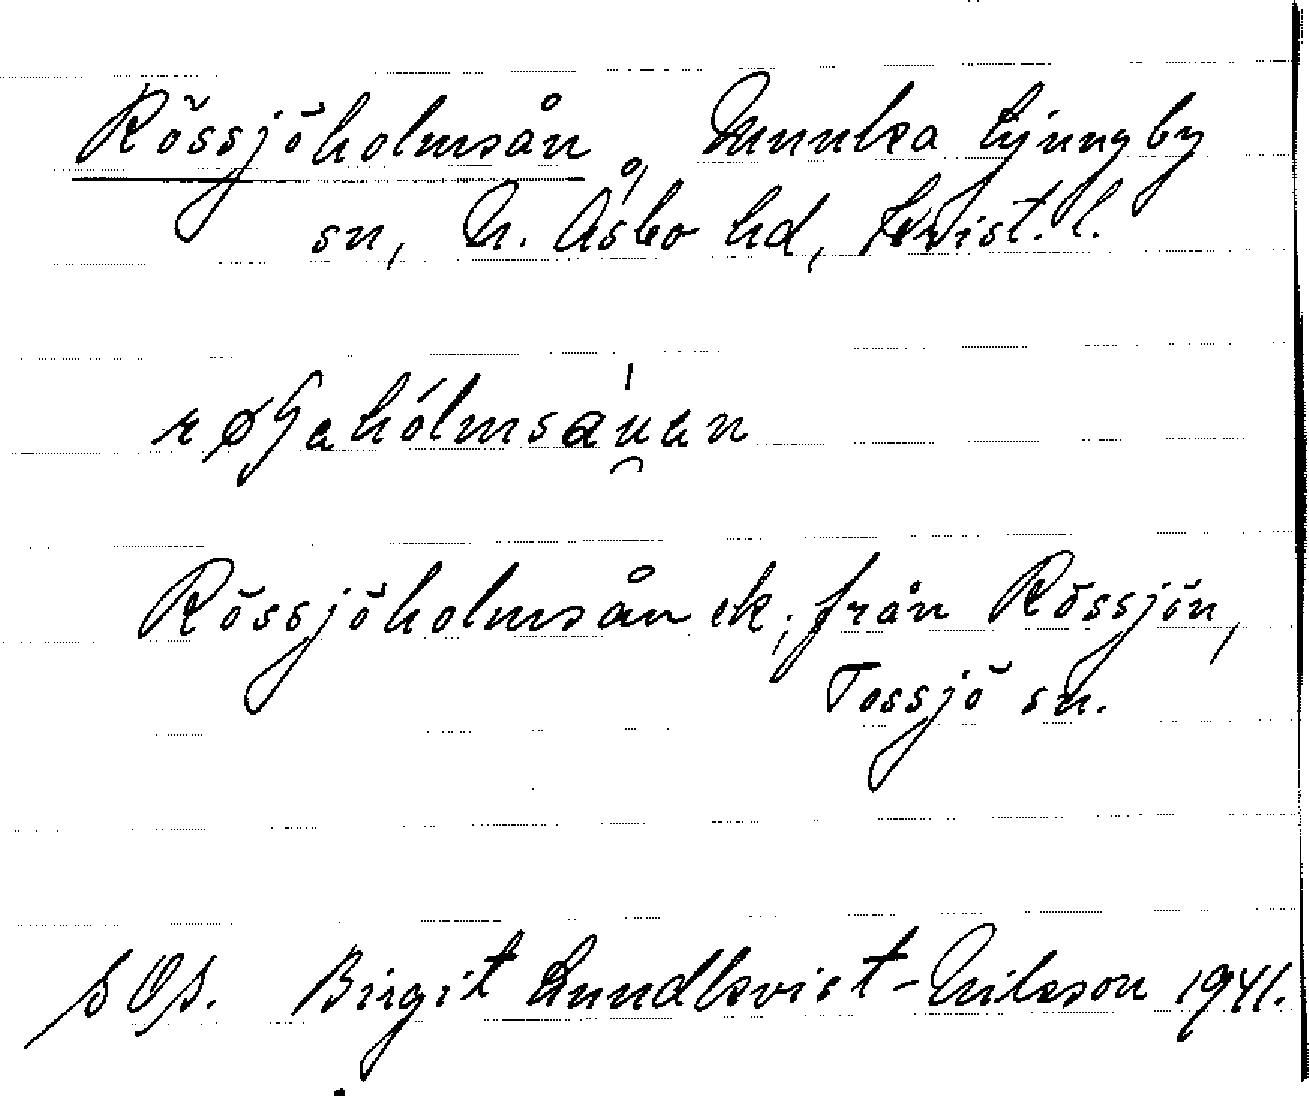 Rössjöholmsån, Munka Ljungby
sn, N. Åsbo hd, Krist. l.
Rössjöholmsån ek, från Rössjön,
Tossjö sn.
SOS. Birgit Lundkvist-Nilsson 1941.